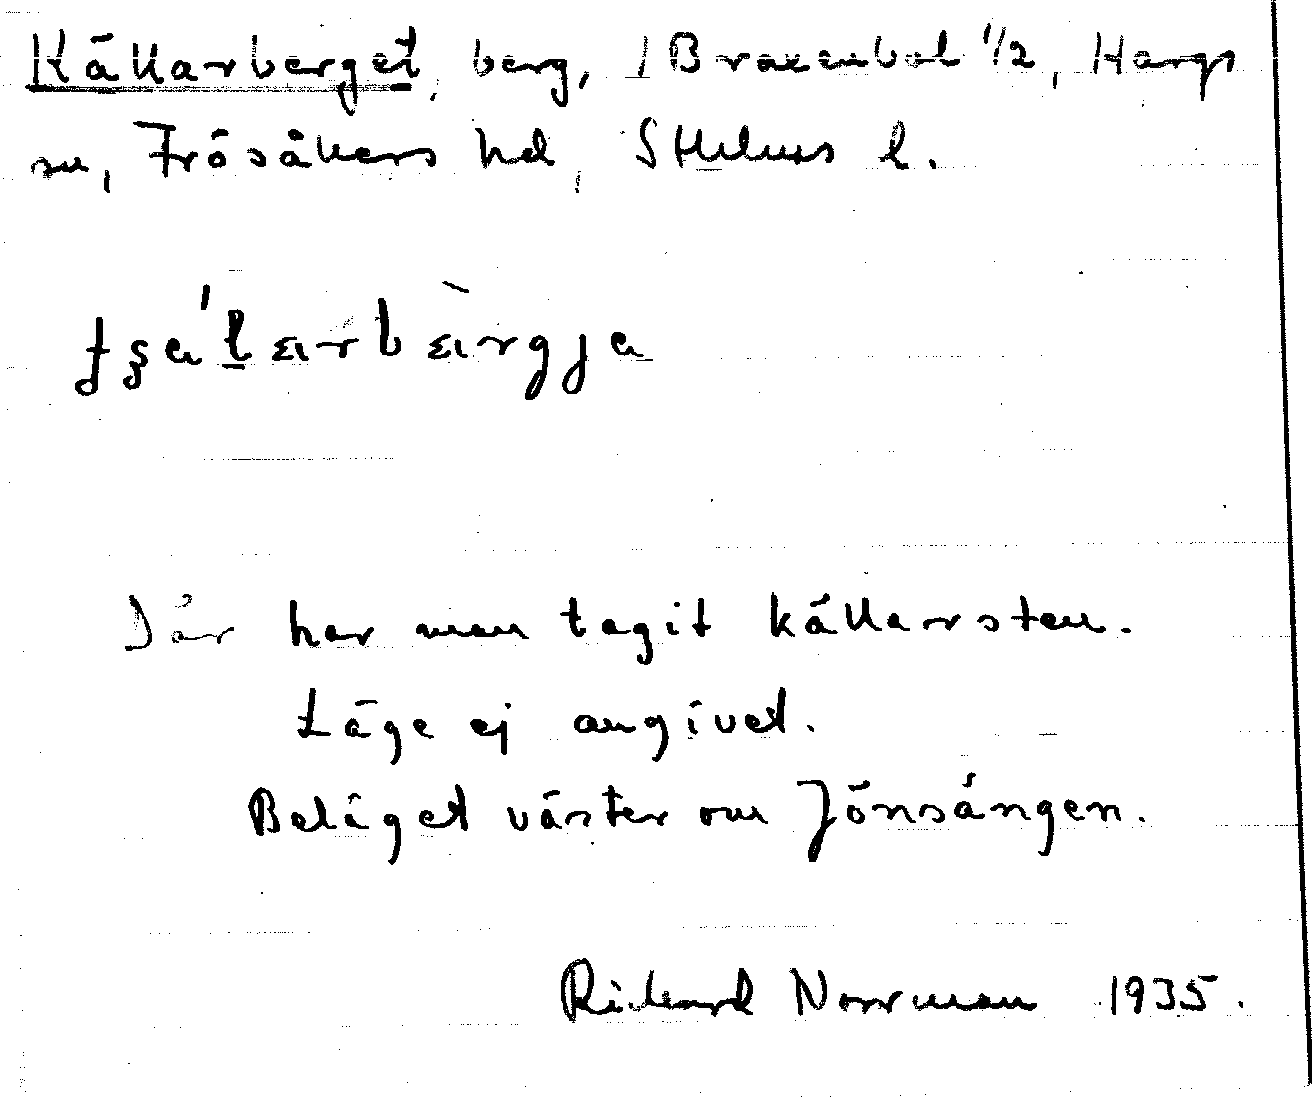 Källarberget, berg, 1 Braxenbol 1/2, Hargs
sn, Frösåkers hd, Sthlms l.
Där har man tagit källarsten.
Läge ej angivet.
Beläget väster om Jönsängen.
Richard Norrman 1935.